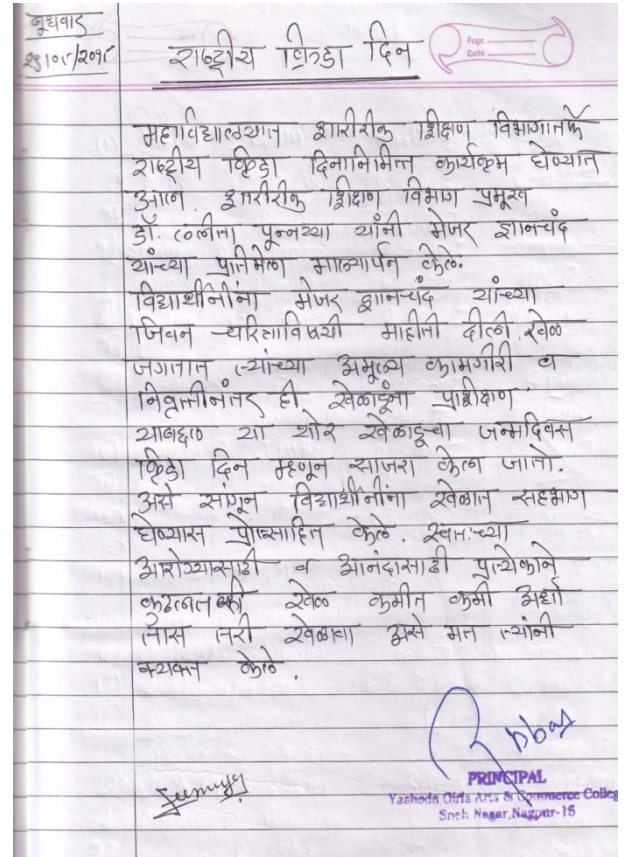 बुधवार
राष्ट्रीय क्रिडा दिन
Page
Date
महाविद्यालयात शारीरीक शिक्षण विभागातर्फे
राष्ट्रीय क्रिडा दिनानिमित्त कार्यक्रम घेण्यात
आले शारीरीक शिक्षण विभाग प्रमुख
डॉ. ललीता पून्नय्या यांनी मेजर ज्ञानचंद
यांच्या प्रतिमेला माल्यार्पन केले.
विद्यार्थीनींना मेजर ज्ञानचंद यांच्या
जिवन चरित्राविषयी माहीती दीली. खेळ
जगातात त्यांच्या अमुल्य कामगीरी व
निवृत्तीनंतर ही खेळाडूंना प्रशीक्षण
याबद्दल या थोर खेळाडूचा जन्मदिवस
क्रिडा दिन म्हणून साजरा केला जातो.
असे सांगून विद्यार्थीनींना खेळात सहभाग
घेण्यास प्रोत्साहित केले. स्वतःच्या
आरोग्यासाठी व आनंदासाठी प्रत्येकाने
खेळ कमीत कमी अर्धा
तास तरी खेळावा असे मत त्यांनी
व्यक्त केले.
PRINCIPAL
Yashoda Girls Arts & Commerce College
Sneh Nagar, Nagpur-15